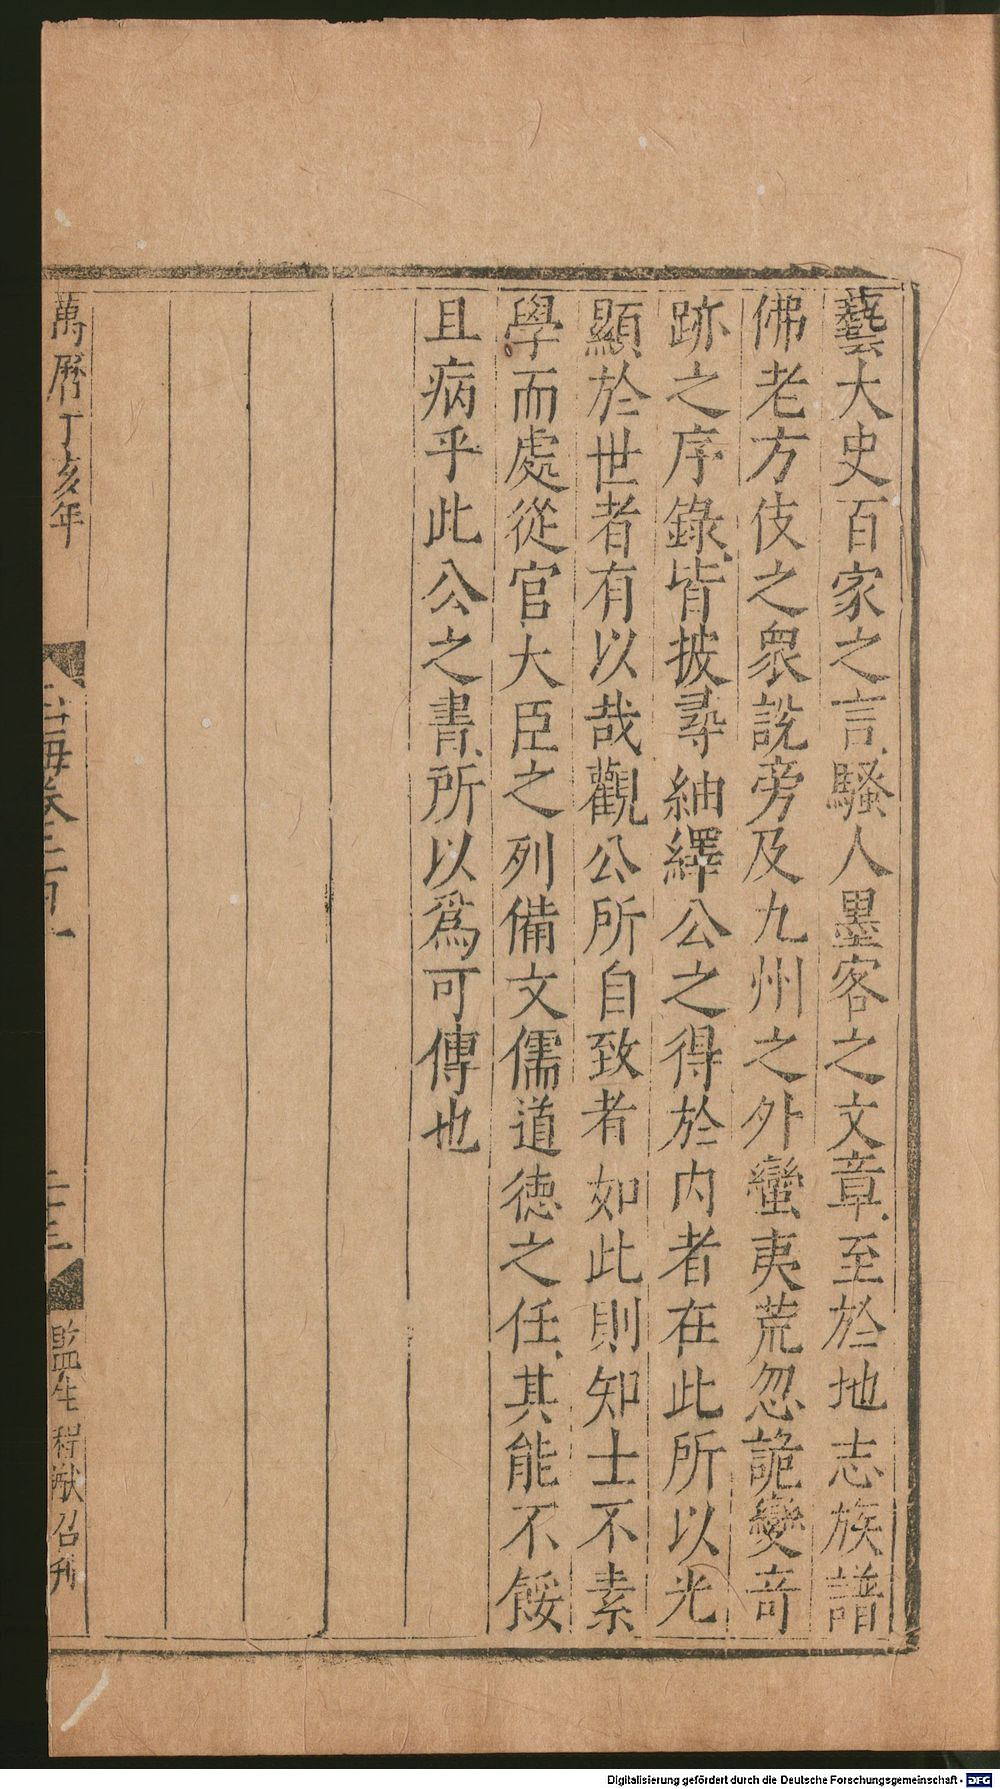 藝大史百家之言騷人墨客之文章至於地志族譜
佛老方伎之衆說旁及九州之外蠻夷荒忽詭變奇
跡之序錄皆披尋紬繹公之得於内者在此所以光
顯於世者有以哉觀公所自致者如此則知士不素
學而處從官大臣之列備文儒道德之任其能不餒
且病乎此公之書所以爲可傳也
萬曆丁亥年
海卷二百一
二十三
監生程猷召刊
Digitalisierung gefördert durch die Deutsche Forschungsgemeinschaft - DFG